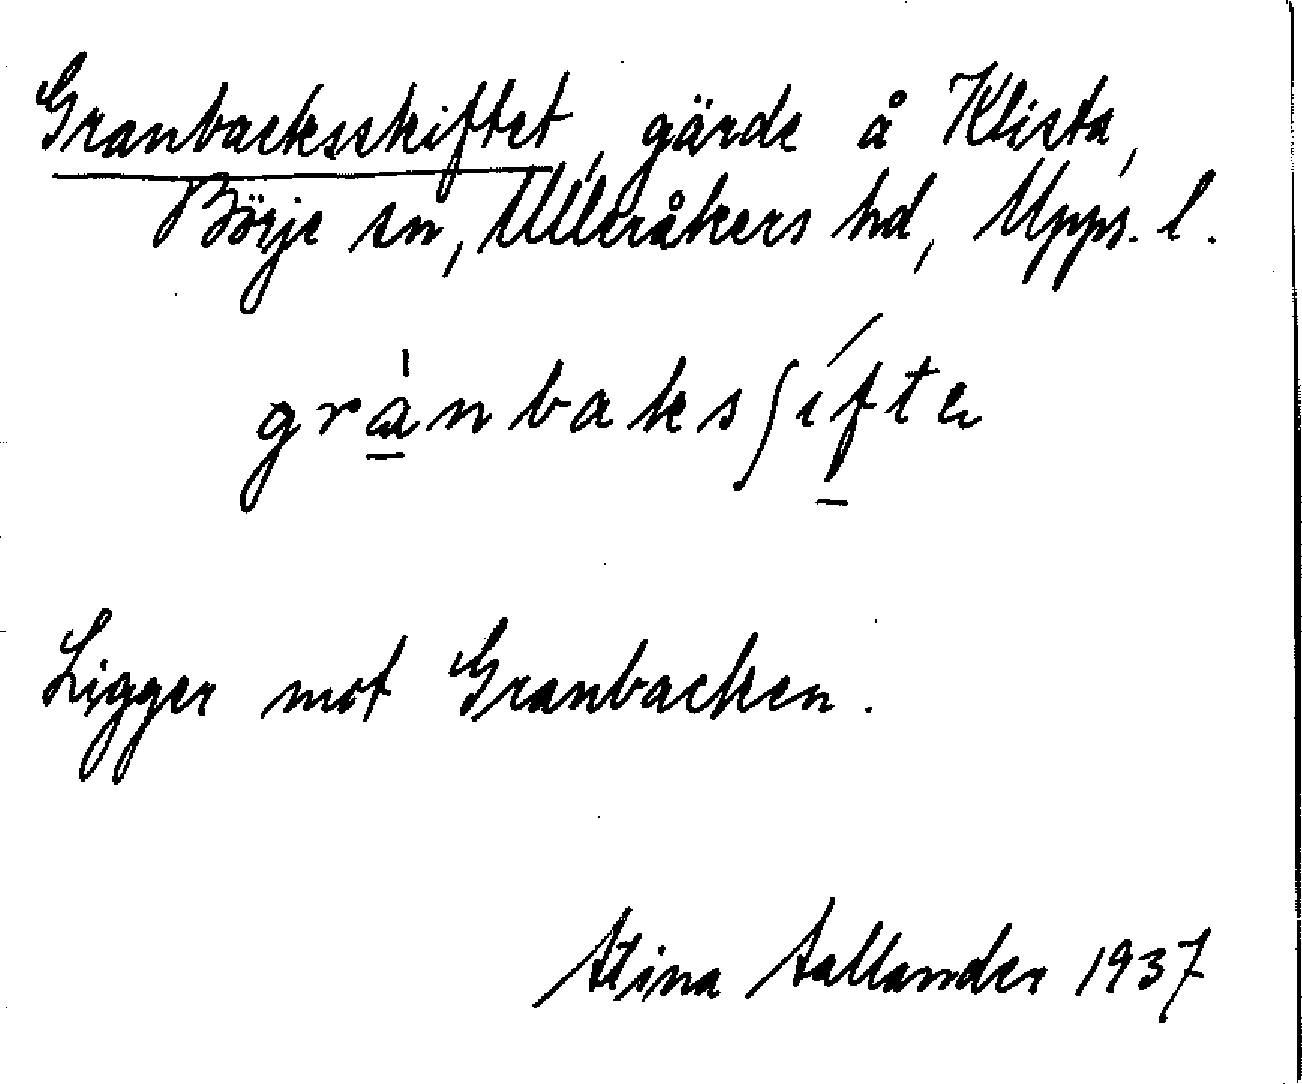 Granbacksskiftet, gärde å Klista,
Börje sn, Ulleråkers hd, Upps. l.
grànbaksʃífte
Ligger mot Granbacken.
Stina Sallander 1937